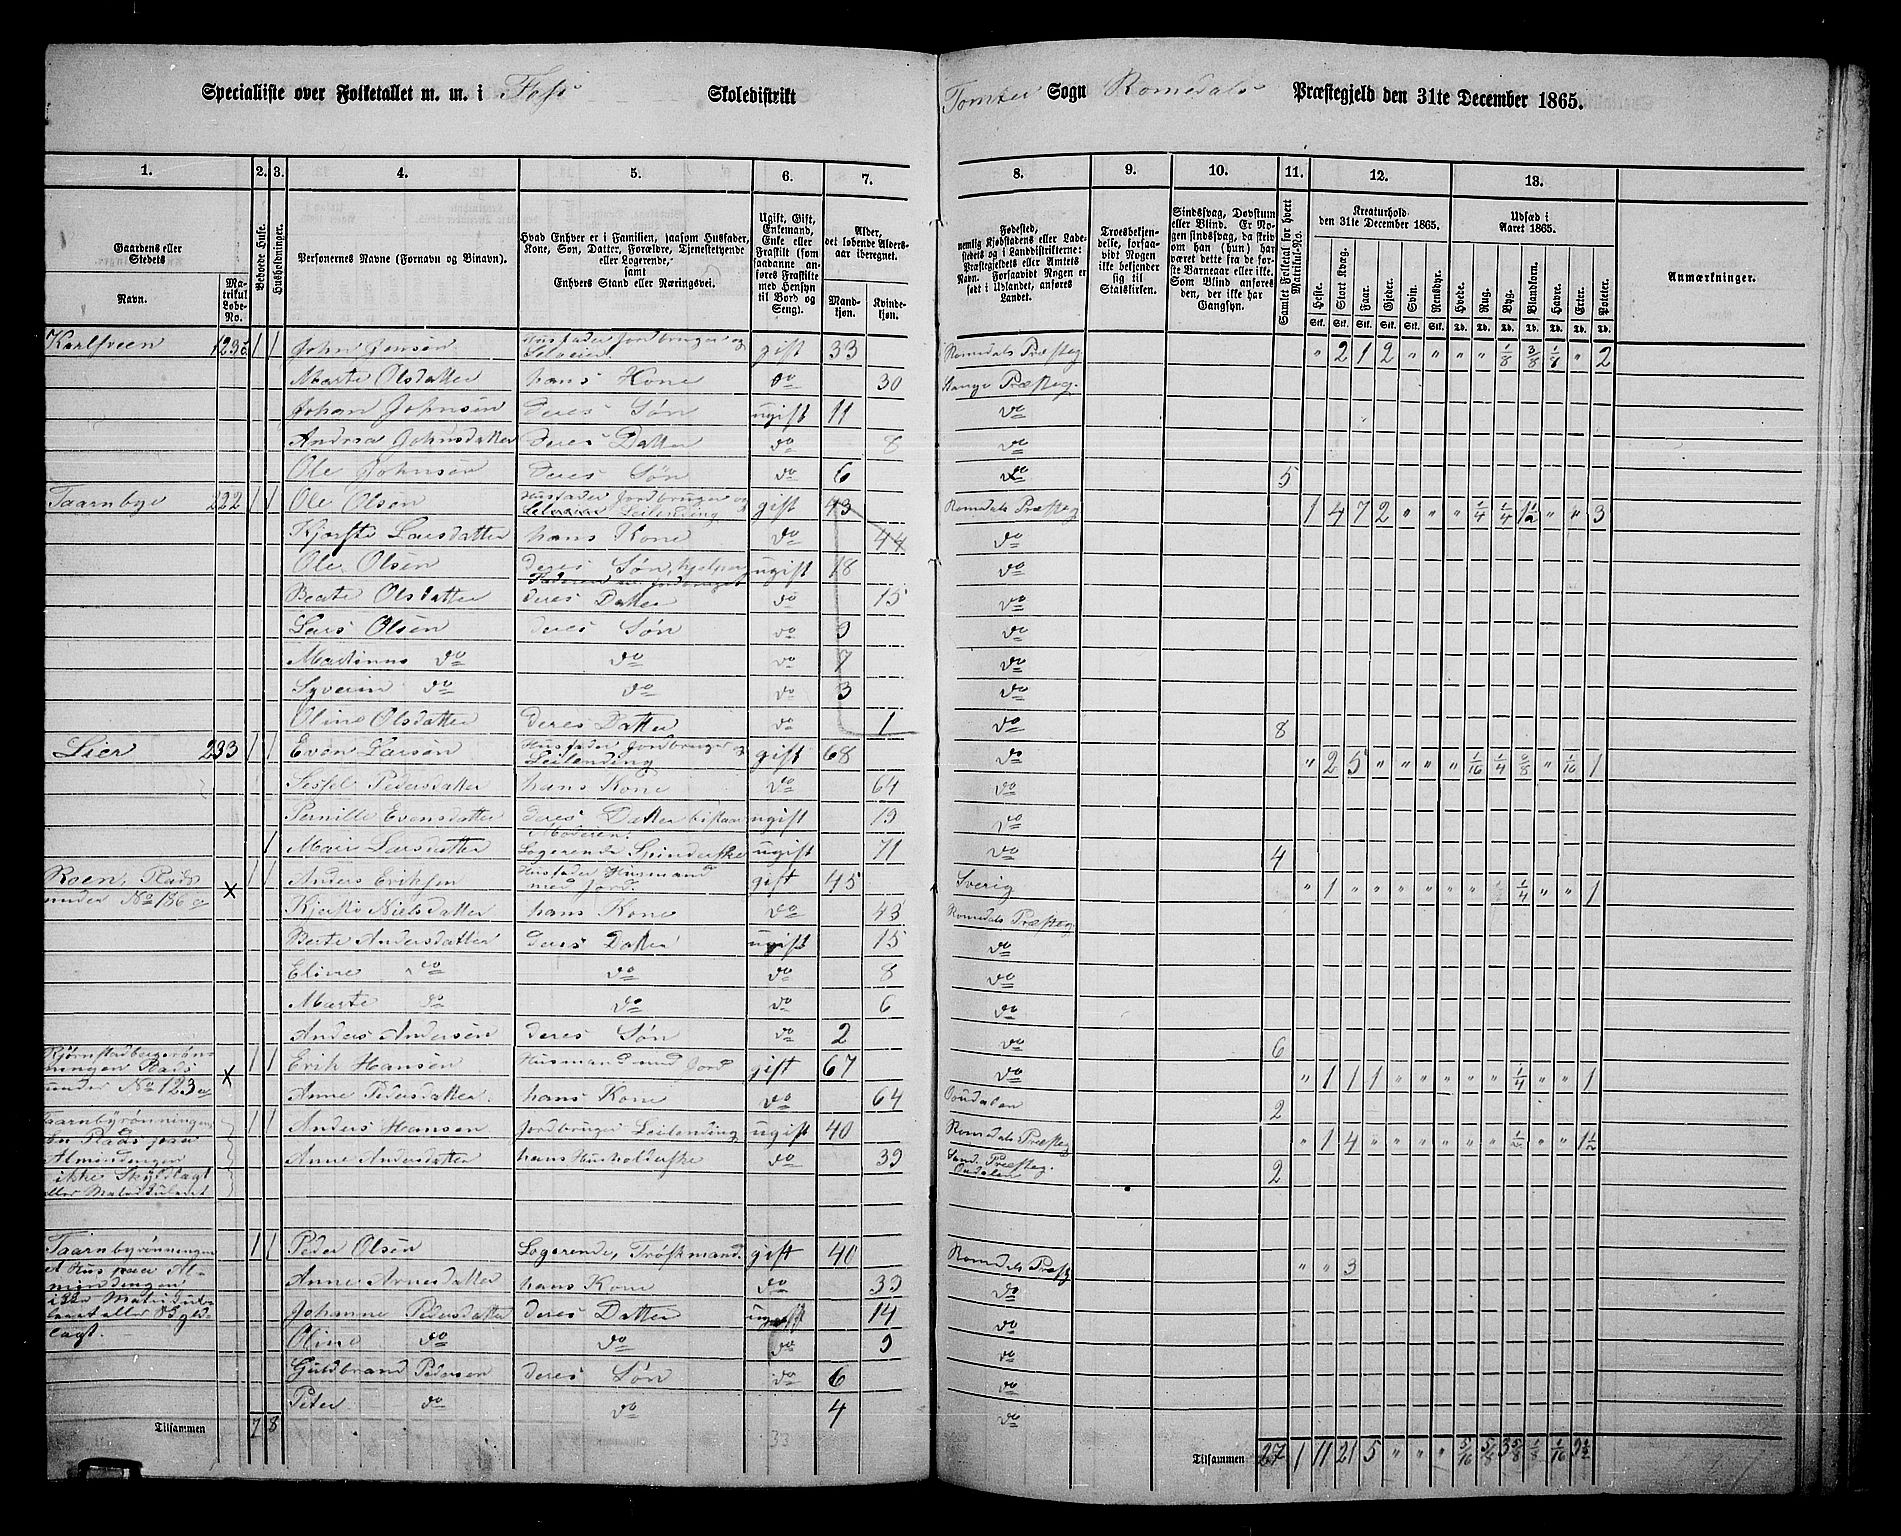 Specialliste over Folketallet m. m. i Foss Skoledistrikt Tomter Sogn Romedals Præstegjeld den 31te December 1865.
1. 2. 3. 4. 5. 6. 7. 8. 9. 10. 11. 12. 13.
Gaardens eller Stedets Navn. Matrikul Løbe-No.
Beboede Huse.
Husholdninger.
Personernes Navne (Fornavn og Binavn).
Hvad Enhver er i Familien, saasom Husfader, Kone, Søn, Datter, Forældre, Tjenestetyende eller Logerende, samt Enhvers Stand eller Næringsvei.
Ugift, Gift, Enkemand, Enke eller Fraskilt (som saadanne anføres Fraskilte med Hensyn til Bord og Seng).
Alder, det løbende Alders-aar iberegnet. Mandkjøn. Kvindekjøn.
Fødested, nemlig Kjøbstadens eller Ladestedets og i Landdistrikterne: Præstegjeldets eller Amtets Navn. Forsaavidt Nogen er født i Udlandet, anføres Landet.
Troesbekjendelse, forsaavidt Nogen ikke bekjender sig til Statskirken.
Sindssvag, Døvstum eller Blind. Er Nogen sindssvag, da skrives om han (hun) har været dette fra de første Barneaar eller ikke. Som Blind ansføres den, der ikke har Gangsyn.
Samlet Folketal for hvert Matrikul-No.
Kreaturhold den 31te December 1865. Heste. Stort Kvæg. Faar. Gjeder. Svin. Rensdyr.
Udsæd i Aaret 1865. Hvede. Rug. Byg. Blandkorn. Havre. Erter. Poteter.
Anmærkninger.
Karlsveen 123c 1 1 John Jensen Husfader Jordbruger og Selveier gift 33 Romedals Præsteg " 2 1 2 " " " " 1/8 3/8 1/8 " 2
Marte Olsdatter hans Kone do 30 Stange Præsteg.
Johan Johnsen deres Søn ugift 11 do
Andrea Johnsdatter deres Datter do 8 do
Ole Johnsen deres Søn do 6 do 5
Taarnbye 222 1 1 Ole Olsen Husfader Jordbruger og Leilending gift 43 Romedals Præsteg 1 4 7 2 " " " 1/4 1/4 1 1/2 " " 3
Kjersti Larsdatter hans Kone do 44 do
Ole Olsen deres Søn, hjelper Faderen m. Jordbruget ugift 18 do
Beate Olsdatter deres Datter do 15 do
Lars Olsen deres Søn do 9 do
Martinus do do do 7 do
Syverin do do do 3 do
Oline Olsdatter deres Datter do 1 do 8
Lier 233 1 1 Even Larsen Husfader Jordbruger og Leilending gift 68 do " 2 5 " " " " 1/16 1/4 " 1/16 1
Sissel Pedersdatter hans Kone do 64 do
Pernille Evensdatter deres Datter bistaar Moderen ugift 19 do
Mari Larsdatter Logerende Spinderske ugift 71 do 4
Roen, Plads under No 186 a × 1 1 Anders Eriksen Husfader Husmand med Jord gift 45 Sverig " 1 " " " " " " 1/4 " " 1
Kjersti Nielsdatter hans Kone do 43 Romedals Præsteg
Berte Andersdatter deres Datter ugift 15 do
Eline do do do 8 do
Marte do do do 6 do
Anders Andersen deres Søn do 2 do 6
Bjørnstadbergsrønningen Plads under No 123 a × 1 1 Erik Hansen Husmand med Jord gift 67 do " 1 1 1 " " " " 1/4 " " 1
Anne Pedersdatter hans Kone do 64 Oudalen 2
Taarnbyrønningen En Plads paa Almindingen ikke Skyldlagt eller Matriculeret 1 1 Anders Hansen Jordbruger Leilending ugift 40 Romedals Præsteg " 1 4 " " " " " 1/2 " " 1 1/2
Anne Andersdatter hans Husholderske do 39 Sand. Præsteg. Oudalen 2
Taarnbyrønningen et Hus paa Almindingen ikke Matriculeret eller Skyldlagt. 1 1 Peder Olsen Logerende, Trøskmand. gift 40 Romedals Præstg " " 3
Anne Arnesdatter hans Kone do 39 do
Johanne Pedersdatter deres Datter ugift 14 do
Oline do do do 9 do
Guldbrand Pedersen deres Søn do 6 do
Peter do do 4 do
Tilsammen 7 8
33
Tilsammen 27 1 11 21 5 " " " 5/16 5/8 3 5/8 1/8 1/16 9 1/2